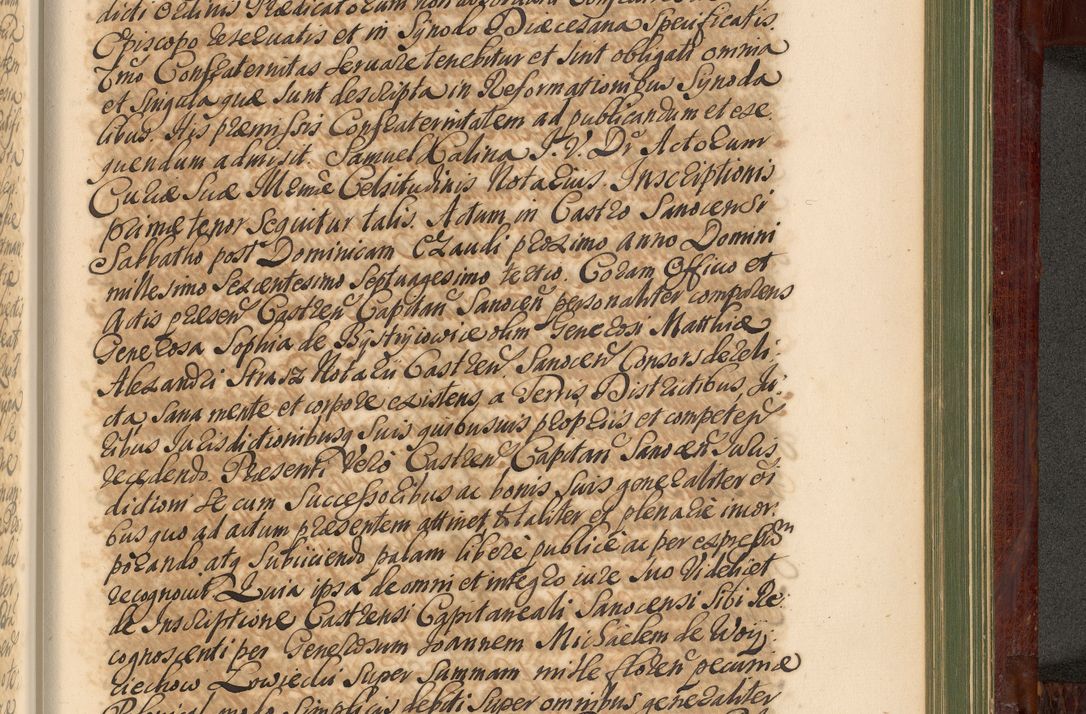 dicti Ordinis Prædicatorum non
Episcopo reservatis et in Synodo Diæcesana specificatis.
Imo Confraternitas servare tenebitur et sint obligati omnia
et singula quæ sunt descripta in Reformationibus Synoda
libus. His præmissis Confraternitatem ad publicandum et exe
quendum admisit. Samuel Kalina J. V. Dr Actorum
Curiæ suæ Illmæ Celsitudinis Notarius. Inscriptionis
primæ tenor sequitur talis. Actum in Castro Sanocensi
Sabbatho post Dominicam Exaudi proximo anno Domini
millesimo sexcentesimo septuagesimo tertio. Coram Officio et
Actis præsen Castren Capitan Sanocen personaliter comparens
Generosa Sophia de Bystryiowice olim Generosi Matthiæ
Alexandri Strasz Notarii Castren Sanocen Consors dereli
cta sana mente et corpore existens a Terris, Districtibus, Ju
ribus Jurisdictionibusq suis quibusuis propriis et competen
recedendo. Præsenti vero Castren Capitan Sanocen Juris
dictioni se cum successoribus ac bonis suis generaliter oi
bus quo ad actum præsentem attinet totaliter et plenarie incor
porando atq subiiciendo palam libere publice ac per expressum
recognovit Quia ipsa de omni et integro iure suo videlicet
de Inscriptione Castrensi Capitaneali Sanocensi sibi Re
cognoscenti per Generosum Joannem Michaelem de Woy
ciechow Łowiecki super summam mille floren pecuniæ
simplicis debiti super omnibus generaliter